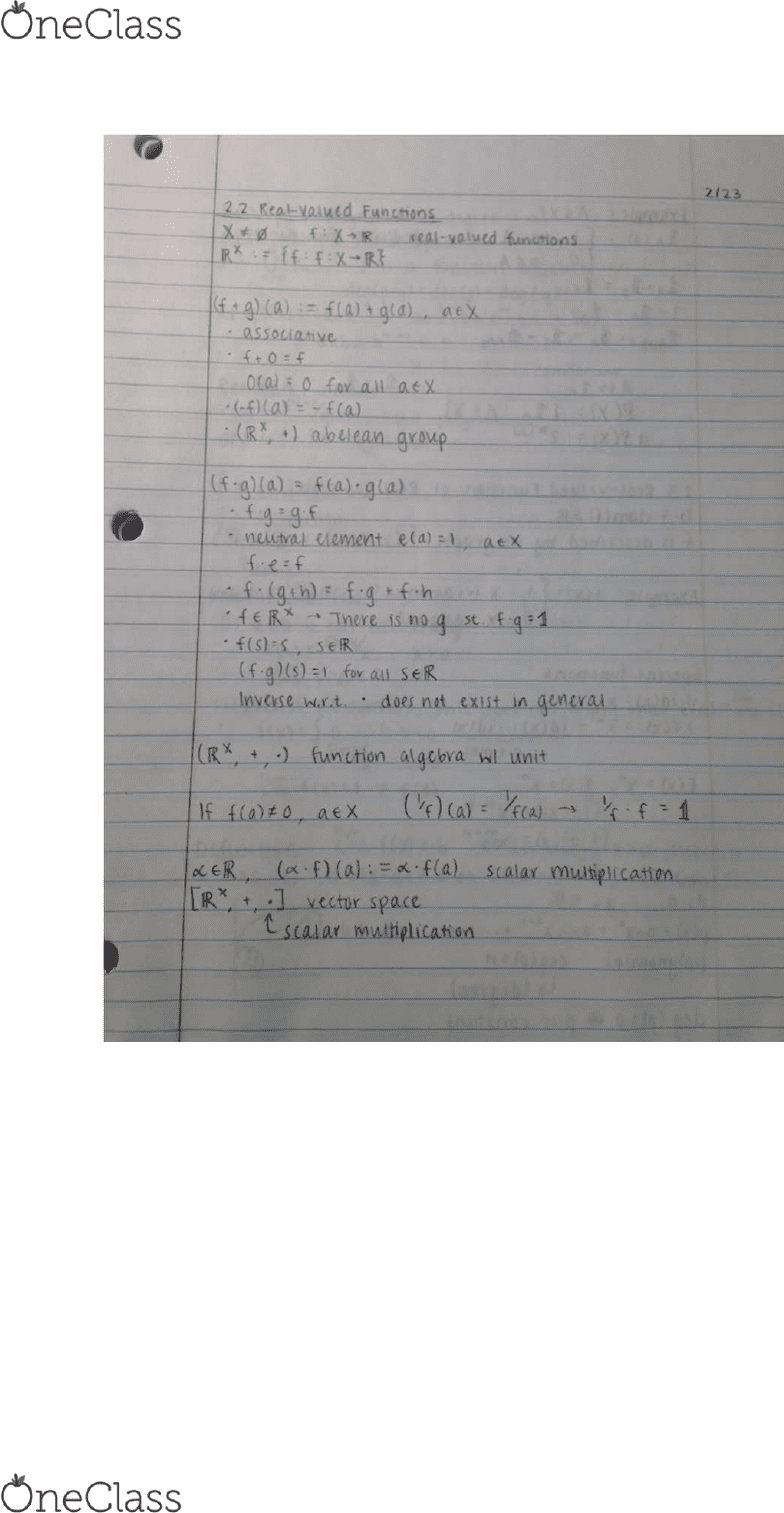 OneClass
2/23
2.2 Real-Valued Functions
X ≠ ∅ f: X→R real-valued functions
ℝˣ := {f : f: X→ℝ}
(f+g)(a) := f(a) + g(a), a∈X
· associative
· f+0 = f
0(a) = 0 for all a∈X
· (-f)(a) = -f(a)
· (ℝˣ, +) abelean group
(f·g)(a) = f(a)·g(a)
· f·g = g·f
· neutral element e(a)=1, a∈X
f·e = f
· f·(g+h) = f·g + f·h
· f∈ℝˣ → There is no g st. f·g = 𝟙
· f(s)=s, s∈ℝ
(f·g)(s)=1 for all s∈ℝ
Inverse w.r.t. · does not exist in general
(ℝˣ, +, ·) function algebra w/ unit
If f(a)≠0, a∈X (1/f)(a) = 1/f(a) → 1/f · f = 𝟙
α∈ℝ, (α·f)(a) := α·f(a) scalar multiplication
[ℝˣ, +, ·] vector space
↑ scalar multiplication
OneClass